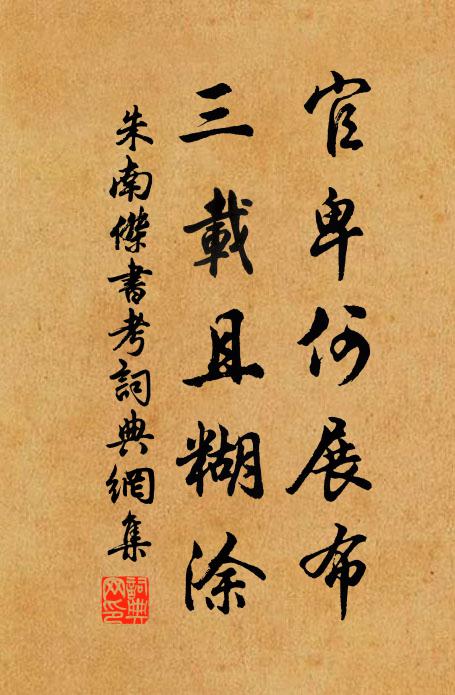 官卑何展布
三載且糊涂
朱南傑書考詞典網集
詞典网印